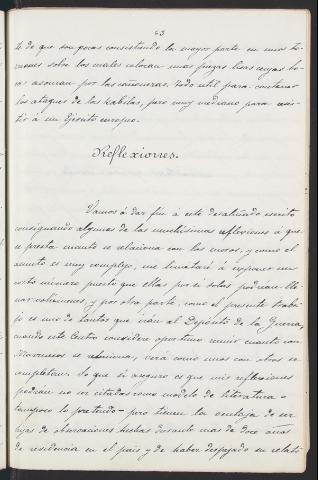 63
to de que son pocas consistiendo la mayor parte en unos te-
rraones sobre los cuales colocan unas piezas lisas cuyas bo-
cas asoman por las cañoneras. Todo util para contener
los ataques de las kabilas, pero muy mediano para resis-
tir á un Ejército europeo.
Reflexiones.
Vamos á dar fin á este desaliñado escrito
consignando algunas de las muchísimas reflexiones á que
se presta cuanto se relaciona con los moros, y como el
asunto es muy complejo, me limitaré á exponer un
corto número puesto que ellas por si solas podrían lle-
nar volúmenes, y por otra parte, como el presente traba-
jo es uno de tantos que irán al Depósito de la Guerra,
cuando este Centro considere oportuno reunir cuanto con
Marruecos se relaciona, verá como unos con otros se
completan. Lo que si aseguro es que mis reflexiones
podrían no ser citadas como modelo de literatura –
tampoco lo pretendo – pero tienen la ventaja de ser
hijas de observaciones hechas durante mas de doce años
de residencia en el pais y de haber despojado su relati-